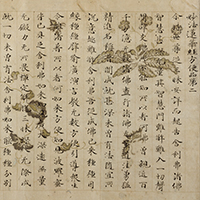 妙法蓮華經方便品第二
安詳而起告舍利弗諸佛
智慧門難解難入一切聲
不能知所以者何佛曾親近百
諸佛無量道法勇猛
精進名稱普聞成就甚深未曾有法隨宜所
說意趣難解舍利弗吾從成佛已來種種因
緣種種譬喻廣演言教無數方便引導眾生
令離諸著所以者何如來方便知見波羅蜜
皆已具足舍利弗如來知見廣大深遠無量
無礙力無所畏禪定解脫三昧深入無際成
就一切未曾有法舍利弗如來能種種分別